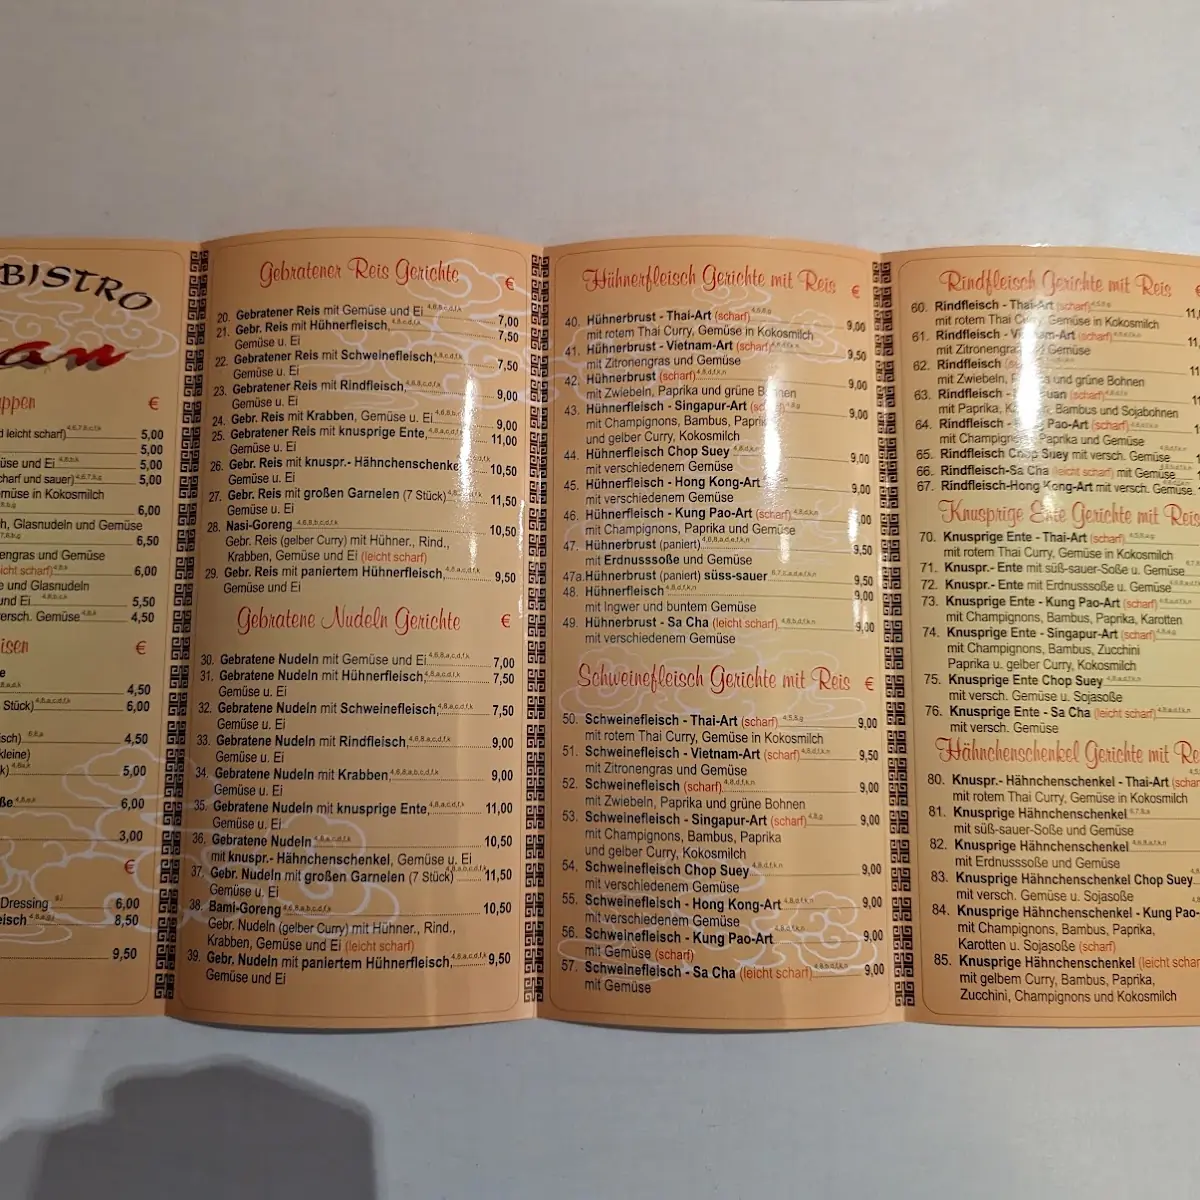 BISTRO
an
ppen €
d leicht scharf) 5,00
5,00
üse und Ei 5,00
charf und sauer) 5,00
emüse in Kokosmilch
6,00
h, Glasnudeln und Gemüse
6,50
engras und Gemüse
icht scharf) 6,00
e und Glasnudeln
und Ei 5,50
versch. Gemüse 4,50
isen €
e
4,50
Stück) 6,00
sch) 4,50
kleine)
k) 5,00
ße 6,00
3,00
€
Dressing 6,00
eisch 8,50
9,50
Gebratener Reis Gerichte €
20. Gebratener Reis mit Gemüse und Ei 7,00
21. Gebr. Reis mit Hühnerfleisch, 7,50
Gemüse u. Ei
22. Gebratener Reis mit Schweinefleisch, 7,50
Gemüse u. Ei
23. Gebratener Reis mit Rindfleisch, 9,00
Gemüse u. Ei
24. Gebr. Reis mit Krabben, Gemüse u. Ei 9,00
25. Gebratener Reis mit knusprige Ente, 11,00
Gemüse u. Ei
26. Gebr. Reis mit knuspr.- Hähnchenschenke 10,50
Gemüse u. Ei
27. Gebr. Reis mit großen Garnelen (7 Stück) 11,50
Gemüse u. Ei
28. Nasi-Goreng 10,50
Gebr. Reis (gelber Curry) mit Hühner, Rind.,
Krabben, Gemüse und Ei (leicht scharf)
29. Gebr. Reis mit paniertem Hühnerfleisch, 9,50
Gemüse und Ei
Gebratene Nudeln Gerichte €
30. Gebratene Nudeln mit Gemüse und Ei 7,00
31. Gebratene Nudeln mit Hühnerfleisch, 7,50
Gemüse u. Ei
32. Gebratene Nudeln mit Schweinefleisch, 7,50
Gemüse u. Ei
33. Gebratene Nudeln mit Rindfleisch, 9,00
Gemüse u. Ei
34. Gebratene Nudeln mit Krabben, 9,00
Gemüse u. Ei
35. Gebratene Nudeln mit knusprige Ente, 11,00
Gemüse u. Ei
36. Gebratene Nudeln 10,50
mit knuspr.- Hähnchenschenkel, Gemüse u. Ei
37. Gebr. Nudeln mit großen Garnelen (7 Stück) 11,50
Gemüse u. Ei
38. Bami-Goreng 10,50
Gebr. Nudeln (gelber Curry) mit Hühner, Rind.,
Krabben, Gemüse und Ei (leicht scharf)
39. Gebr. Nudeln mit paniertem Hühnerfleisch, 9,50
Gemüse und Ei
Hühnerfleisch Gerichte mit Reis €
40. Hühnerbrust - Thai-Art (scharf) 9,00
mit rotem Thai Curry, Gemüse in Kokosmilch
41. Hühnerbrust - Vietnam-Art (scharf) 9,50
mit Zitronengras und Gemüse
42. Hühnerbrust (scharf) 9,00
mit Zwiebeln, Paprika und grüne Bohnen
43. Hühnerfleisch - Singapur-Art 9,00
mit Champignons, Bambus, Paprika
und gelber Curry, Kokosmilch
44. Hühnerfleisch Chop Suey 9,00
mit verschiedenem Gemüse
45. Hühnerfleisch - Hong Kong-Art 9,00
mit verschiedenem Gemüse
46. Hühnerfleisch - Kung Pao-Art (scharf) ,00
mit Champignons, Paprika und Gemüse
47. Hühnerbrust (paniert) 9,50
mit Erdnusssoße und Gemüse
47a. Hühnerbrust (paniert) süss-sauer 9,50
48. Hühnerfleisch 9,00
mit Ingwer und buntem Gemüse
49. Hühnerbrust - Sa Cha (leicht scharf) 9,00
mit verschiedenem Gemüse
Schweinefleisch Gerichte mit Reis €
50. Schweinefleisch - Thai-Art (scharf) 9,00
mit rotem Thai Curry, Gemüse in Kokosmilch
51. Schweinefleisch - Vietnam-Art (scharf) 9,50
mit Zitronengras und Gemüse
52. Schweinefleisch (scharf) 9,00
mit Zwiebeln, Paprika und grüne Bohnen
53. Schweinefleisch - Singapur-Art (scharf) 9,00
mit Champignons, Bambus, Paprika
und gelber Curry, Kokosmilch
54. Schweinefleisch Chop Suey 9,00
mit verschiedenem Gemüse
55. Schweinefleisch - Hong Kong-Art 9,00
mit verschiedenem Gemüse
56. Schweinefleisch - Kung Pao-Art 9,00
mit Gemüse (scharf)
57. Schweinefleisch - Sa Cha (leicht scharf) 9,00
mit Gemüse
Rindfleisch Gerichte mit Reis €
60. Rindfleisch - Thai-Art (scharf) 11,
mit rotem Thai Curry, Gemüse in Kokosmilch
61. Rindfleisch - Vietnam-Art (scharf) 11,
mit Zitronengras und Gemüse
62. Rindfleisch 11
mit Zwiebeln, Paprika und grüne Bohnen
63. Rindfleisch - (scharf) 11
mit Paprika, Bambus und Sojabohnen
64. Rindfleisch - Kung Pao-Art (scharf)
mit Champignons, Paprika und Gemüse
65. Rindfleisch Chop Suey mit versch. Gemüse
66. Rindfleisch-Sa Cha (leicht scharf) mit Gemüse
67. Rindfleisch-Hong Kong-Art mit versch. Gemüse
Knusprige Ente Gerichte mit Reis
70. Knusprige Ente - Thai-Art (scharf)
mit rotem Thai Curry, Gemüse in Kokosmilch
71. Knuspr.- Ente mit süß-sauer-Soße u. Gemüse
72. Knuspr.- Ente mit Erdnusssoße und Gemüse
73. Knusprige Ente - Kung Pao-Art (scharf)
mit Champignons, Bambus, Paprika, Karotten
74. Knusprige Ente - Singapur-Art (scharf)
mit Champignons, Bambus, Zucchini
Paprika u. gelber Curry, Kokosmilch
75. Knusprige Ente Chop Suey
mit versch. Gemüse u. Sojasoße
76. Knusprige Ente - Sa Cha (leicht scharf)
mit versch. Gemüse
Hähnchenschenkel Gerichte mit Re
80. Knuspr.- Hähnchenschenkel - Thai-Art (schar
mit rotem Thai Curry, Gemüse in Kokosmilch
81. Knusprige Hähnchenschenkel
mit süß-sauer-Soße und Gemüse
82. Knusprige Hähnchenschenkel
mit Erdnusssoße und Gemüse
83. Knusprige Hähnchenschenkel Chop Suey
mit versch. Gemüse u. Sojasoße
84. Knusprige Hähnchenschenkel - Kung Pao-
mit Champignons, Bambus, Paprika,
Karotten u. Sojasoße (scharf)
85. Knusprige Hähnchenschenkel (leicht schar
mit gelbem Curry, Bambus, Paprika,
Zucchini, Champignons und Kokosmilch